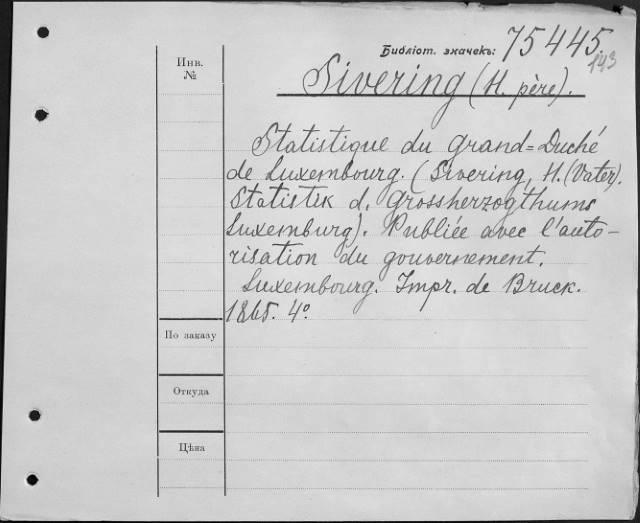 Библіот. значекъ: 75445.
143
Инв.
№
Sivering (H. père).
Statistique du Grand=Duché
de Luxembourg. (Sivering, H. (Vater).
Statistik d. Grossherzogthums
Luxemburg). Publiée avec l'auto-
risation du gouvernement.
Luxembourg. Impr. de Bruck.
1865. 4º
По заказу
Откуда
Цѣна